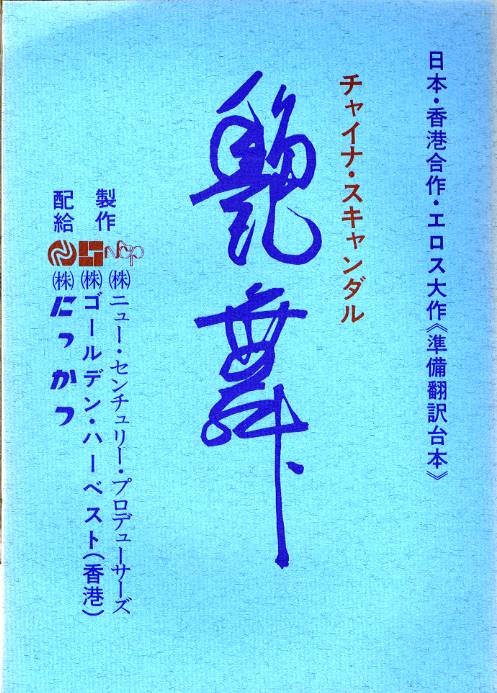 日本・香港合作・エロス大作《準備翻訳台本》
チャイナ・スキャンダル
艶舞
製作
NCP
㈱ニュー・センチュリー・プロデューサーズ
㈱ゴールデン・ハーベスト(香港)
配給
㈱にっかつ